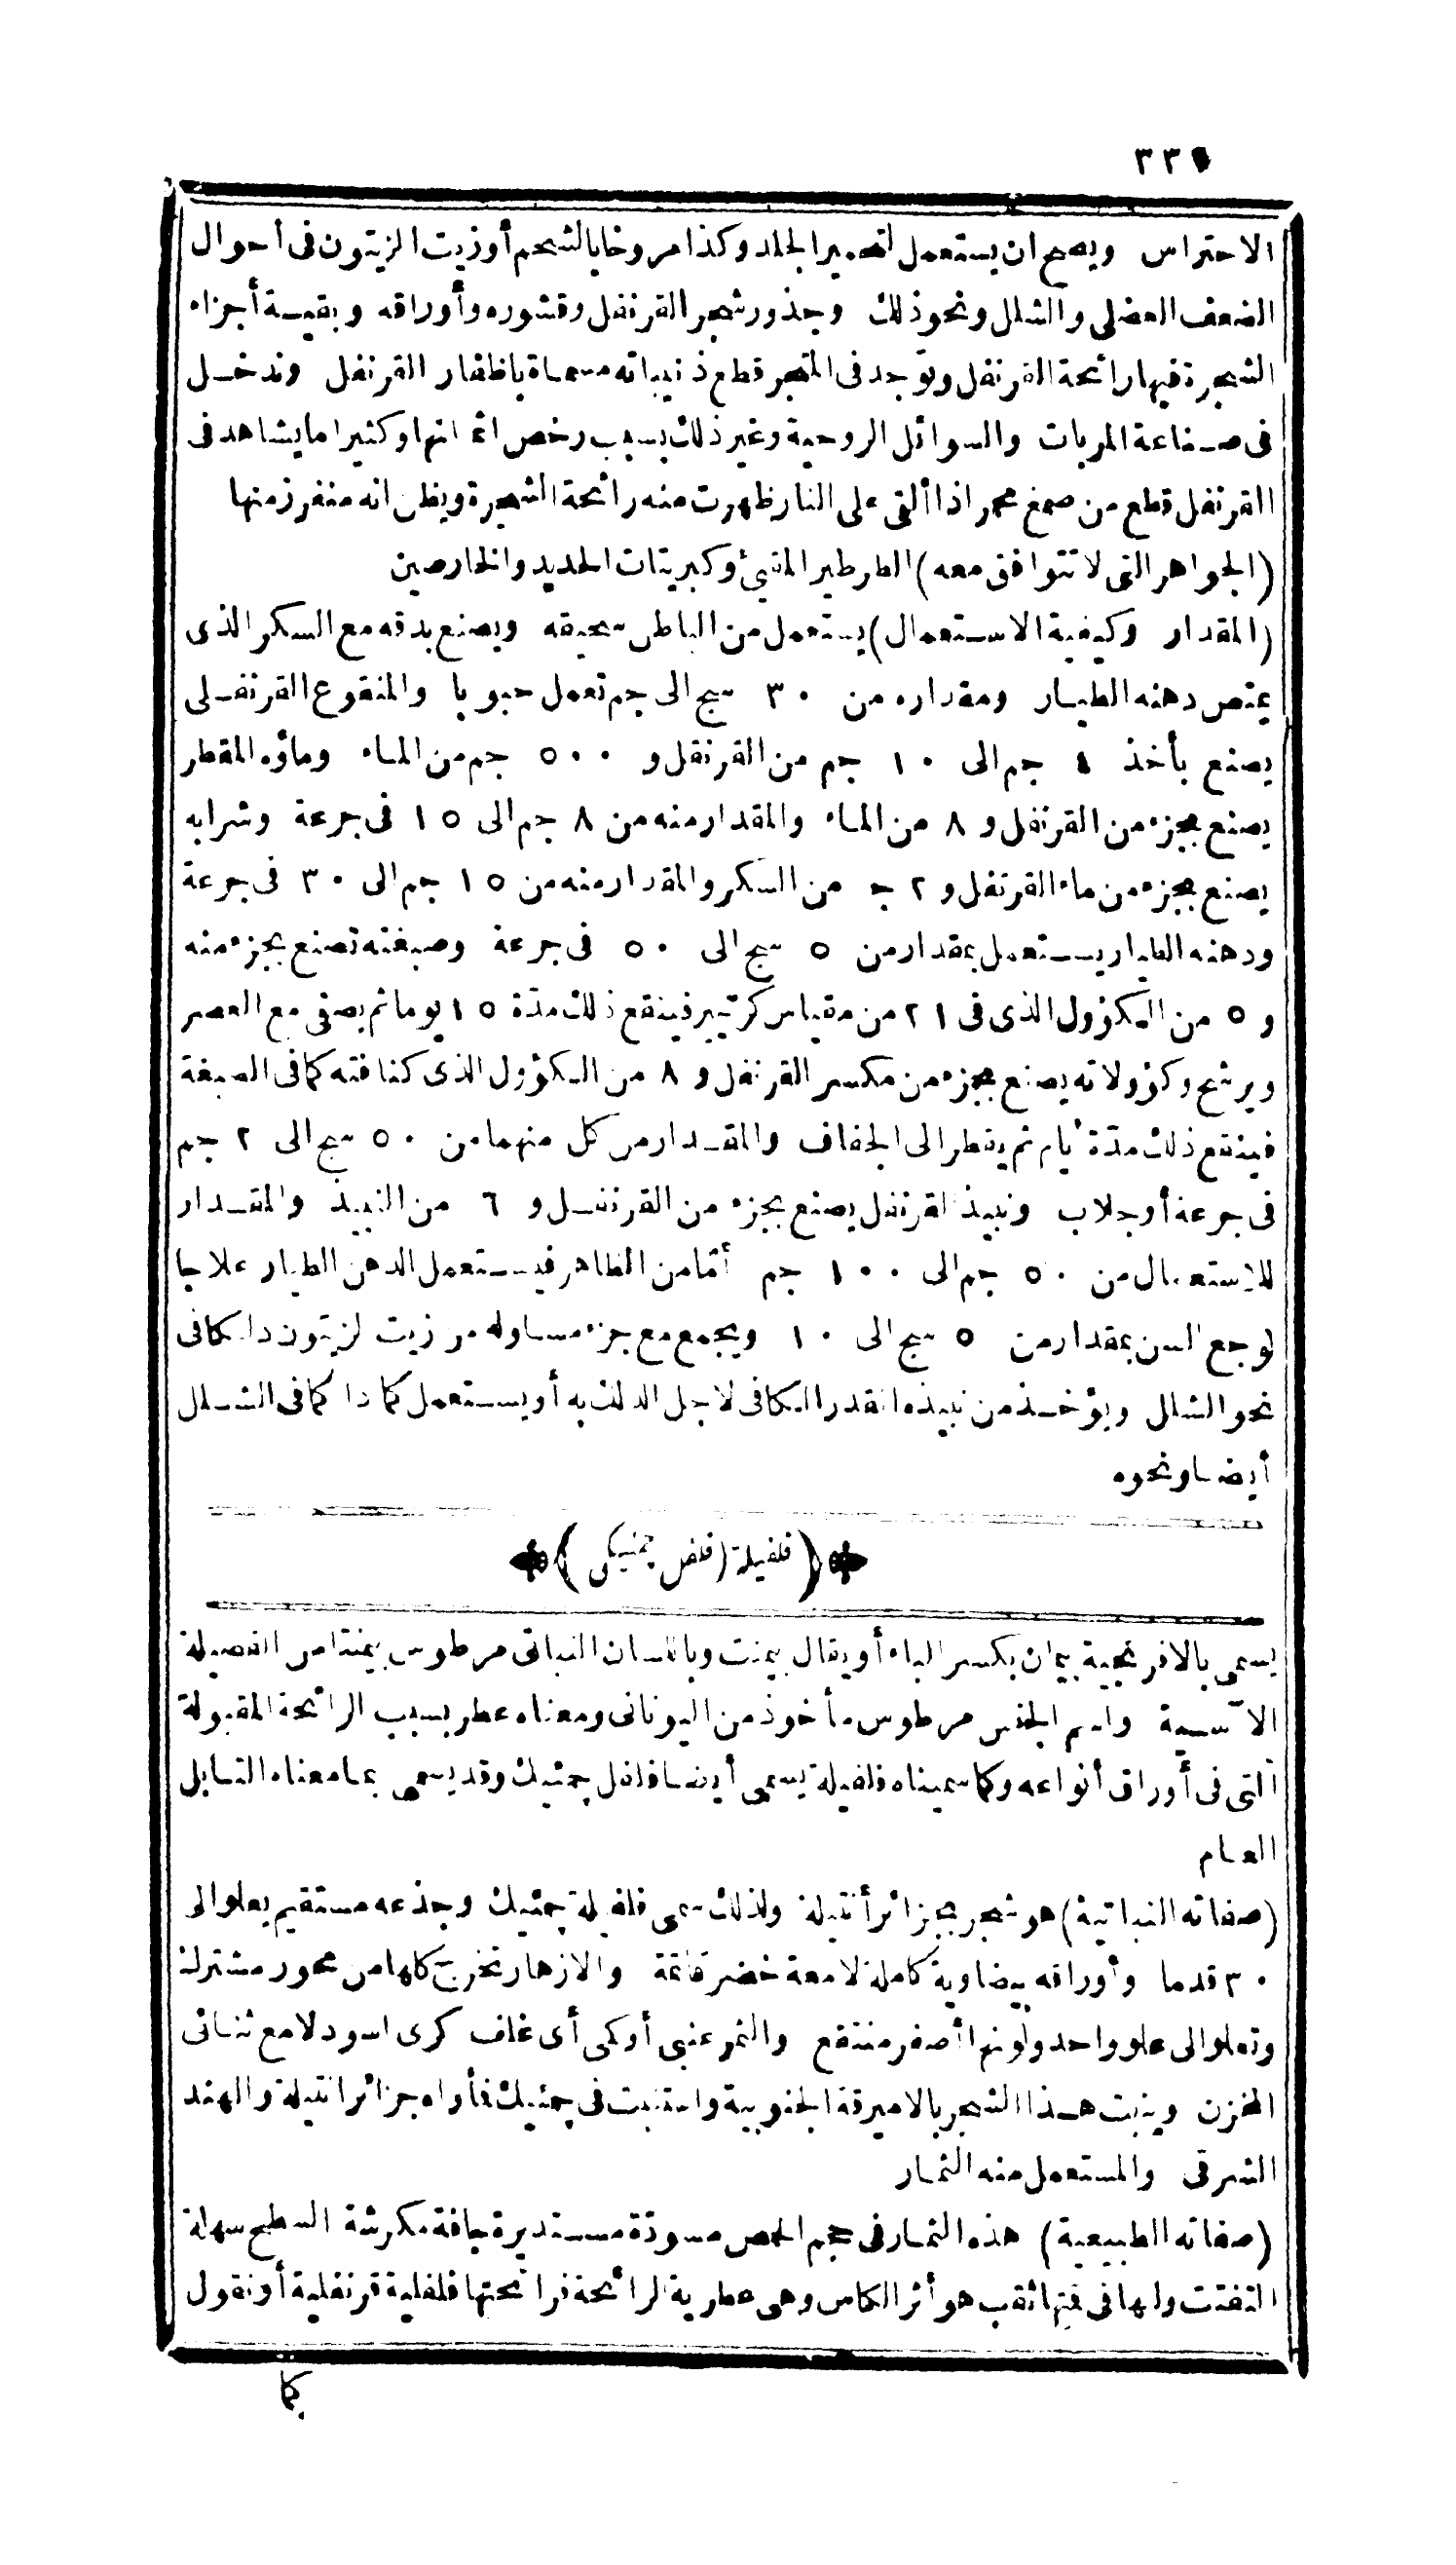 الاحتراس ويصح ان يستعمل لتحمير الجلد وكذا مروخا بالشحم أو زيت الزيتون فى أحوال
الضعف العضلى والشلل ونحو ذلك وجذور شجر القرنفل وقشوره وأوراقه وبقيـة أجزاء
الشجرة فيها رائحة القرنفل وتوجد فى المتجر قطع ذنيباته مسماة باظفار القرنفل وتدخـل
فى صـناعة المربات والسوائل الروحية وغير ذلك بسبب رخص اثمانها وكثيرا ما يشاهد فى
القرنفل قطع من صمغ محمر اذا ألقى على النار ظهرت منه رائحة الشجرة ويظن انه منفرز منها
(الجواهر التى لا تتوافق معه) الطرطير المقيئ وكبريتات الحديد والخارصين
(المقدار وكيفية الاسـتعمال) يستعمل من الباطن سحيقه ويصنع بدقه مع السكر الذى
يمتص دهنه الطيـار ومقداره من ٣٠ سج الى جم تعمل حبوبا والمنقوع القرنفـلى
يصنع بأخذ ٤ جم الى ١٠ جم من القرنفل و ٥٠٠ جم من المـاء وماؤه المقطر
يصنع بجزء من القرنفل و ٨ من المـاء والمقدار منه من ٨ جم الى ١٥ فى جرعة وشرابه
يصنع بجزء من ماء القرنفل و ٢ جـ من السكر والمقدار منه من ١٥ جم الى ٣٠ فى جرعة
ودهنه الطيار يسـتعمل بمقدار من ٥ سج الى ٥٠ فى جرعة وصبغته تصنع بجزء منه
و ٥ من الكؤول الذى فى ٢١ من مقياس كرتيير فينقع ذلك مدّة ١٥ يوما ثم يصفى مع العصر
ويرشح وكؤولاته يصنع بجزء من مكسر القرنفل و ٨ من الكؤول الذى كثافته كما فى الصبغة
فينقع ذلك مدّة أيام ثم يقطر الى الجفاف والمقـدار من كل منهما من ٥٠ سج الى ٢ جم
فى جرعة أو جلاب ونبيذ القرنفل يصنع بجزء من القرنفـل و ٦ من النبيذ والمقـدار
للاستعمال من ٥٠ جم الى ١٠٠ جم أمّا من الظاهر فيسـتعمل الدهن الطيار علاجا
لوجع السن بمقدار من ٥ سج الى ١٠ ويجمع مع جزء مساو له من زيت الزيتون دلكا فى
نحو الشلل ويؤخـذ من نبيذه القدر الكافى لاجل الدلك به أو يسـتعمل كمادا كما فى الشـلل
أيضـا ونحوه
(فلفيلة (فلفل جمنيكى))
يسمى بالافرنجية بيمان بكسر الباء أو يقال بيمنت وباللسان النباتى مرطوس بيمنتا من الفصيلة
الآسـية واسم الجنس مرطوس مأخوذ من اليونانى ومعناه عطر بسبب الرائحة المقبولة
التى فى أوراق أنواعه وكما سميناه فلفيلة يسمى أيضـا فلفل جمئيك وقد يسمى بما معناه التـابل
العـام
(صفاته النباتية) هو شجر بجزائر أنتيلة ولذلك سمى فلفيلة جمئيك وجذعه مستقيم يعلو الى
٣٠ قدما وأوراقه بيضاوية كاملة لامعة خضر قاتمة والازهار تخرج كلها من محور مشترك
وتعلو الى علو واحد ولونها أصفر منتقع والثمر عنبى أو كمى أى غلف كرى اسود لامع ثنائى
المخزن وينبت هـذا الشجر بالاميرقة الجنوبية واستنبت فى جمئيك فأراه جزائر انتيلة والهند
الشرقى والمستعمل منه الثمـار
(صفاته الطبيعية) هذه الثمـار فى حجم الحمص مسودّة مسـتديرة جافة مكرشة السطح سهلة
التفتت ولها فى قمتها ثقب هو أثر الكاس وهى عطرية الرائحة فرائحتها فلفلية قرنفلية أو نقول
كما